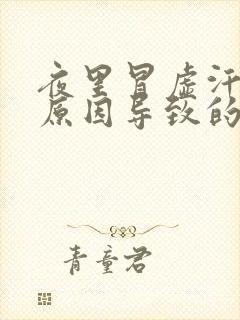 夜里冒虚汗
原因导致的
青童君